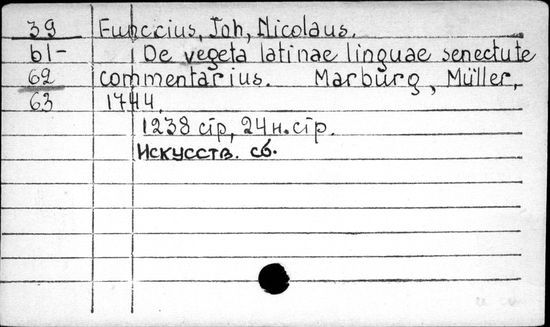 39 Funccius, Joh, Nicolaus.
61- De vegeta latinae linguae senectute
62 commentarius. Marburg, Müller,
63 1744.
1238 стр, 24 н.стр.
Искусств. сб.